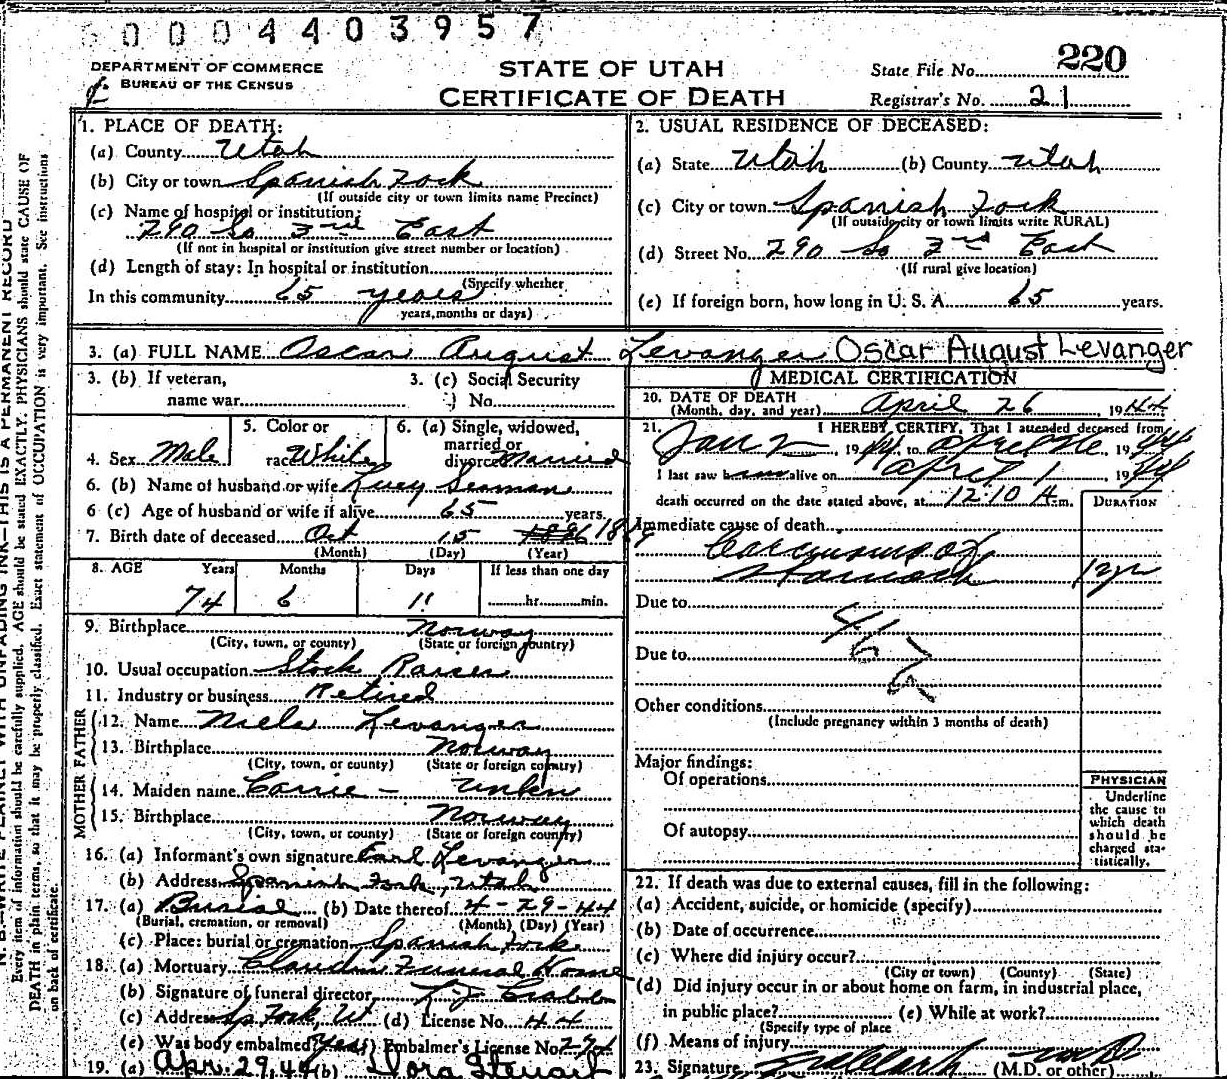 0004403957
DEPARTMENT OF COMMERCE
BUREAU OF THE CENSUS
STATE OF UTAH
CERTIFICATE OF DEATH
State File No. 220
Registrar's No. 21
N. B.—WRITE PLAINLY WITH UNFADING INK—THIS IS A PERMANENT RECORD
Every item of information should be carefully supplied. AGE should be stated EXACTLY. PHYSICIANS should state CAUSE OF
DEATH in plain terms, so that it may be properly classified. Exact statement of OCCUPATION is very important. See instructions
on back of certificate.
1. PLACE OF DEATH:
(a) County Utah
(b) City or town Spanish Fork
(If outside city or town limits name Precinct)
(c) Name of hospital or institution:
290 So 3rd East
(If not in hospital or institution give street number or location)
(d) Length of stay: In hospital or institution
(Specify whether
In this community 65 years
years, months or days)
2. USUAL RESIDENCE OF DECEASED:
(a) State Utah (b) County Utah
(c) City or town Spanish Fork
(If outside city or town limits write RURAL)
(d) Street No. 290 So 3rd East
(If rural give location)
(e) If foreign born, how long in U. S. A. 65 years.
3. (a) FULL NAME Oscar August Levanger Oscar August Levanger
3. (b) If veteran,
name war
3. (c) Social Security
No.
4. Sex Male
5. Color or
race White
6. (a) Single, widowed,
married or
divorced Married
6. (b) Name of husband or wife Lucy Seaman
6 (c) Age of husband or wife if alive 65 years.
7. Birth date of deceased Oct 15 1869
(Month) (Day) (Year)
8. AGE Years Months Days If less than one day
74 6 11 hr. min.
9. Birthplace Norway
(City, town, or county) (State or foreign country)
10. Usual occupation Stock Raiser
11. Industry or business Retired
FATHER
12. Name Niels Levanger
13. Birthplace Norway
(City, town, or county) (State or foreign country)
MOTHER
14. Maiden name Carrie - Unkn
15. Birthplace Norway
(City, town, or county) (State or foreign country)
16. (a) Informant's own signature Earl Levanger
(b) Address Spanish Fork, Utah
17. (a) Burial (b) Date thereof 4-29-44
(Burial, cremation, or removal) (Month) (Day) (Year)
(c) Place: burial or cremation Spanish Fork
18. (a) Mortuary Claudin Funeral Home
(b) Signature of funeral director
(c) Address Sp Fork, Ut (d) License No. 44
(e) Was body embalmed? Yes (f) Embalmer's License No. 274
19. (a) Apr. 29, 44 (b) Dora Stewart
MEDICAL CERTIFICATION
20. DATE OF DEATH
(Month, day, and year) April 26, 1944
21. I HEREBY CERTIFY, That I attended deceased from
Jan 2, 1944, to April 26, 1944
I last saw him alive on April 1, 1944
death occurred on the date stated above, at 12:10 A.m.
DURATION
Immediate cause of death
Carcinoma of
Stomach 1 yr
Due to
46
Due to
Other conditions
(Include pregnancy within 3 months of death)
Major findings:
Of operations
Of autopsy
PHYSICIAN
Underline
the cause to
which death
should be
charged sta-
tistically.
22. If death was due to external causes, fill in the following:
(a) Accident, suicide, or homicide (specify)
(b) Date of occurrence
(c) Where did injury occur?
(City or town) (County) (State)
(d) Did injury occur in or about home on farm, in industrial place,
in public place? (e) While at work?
(Specify type of place
(f) Means of injury
23. Signature (M.D. or other)